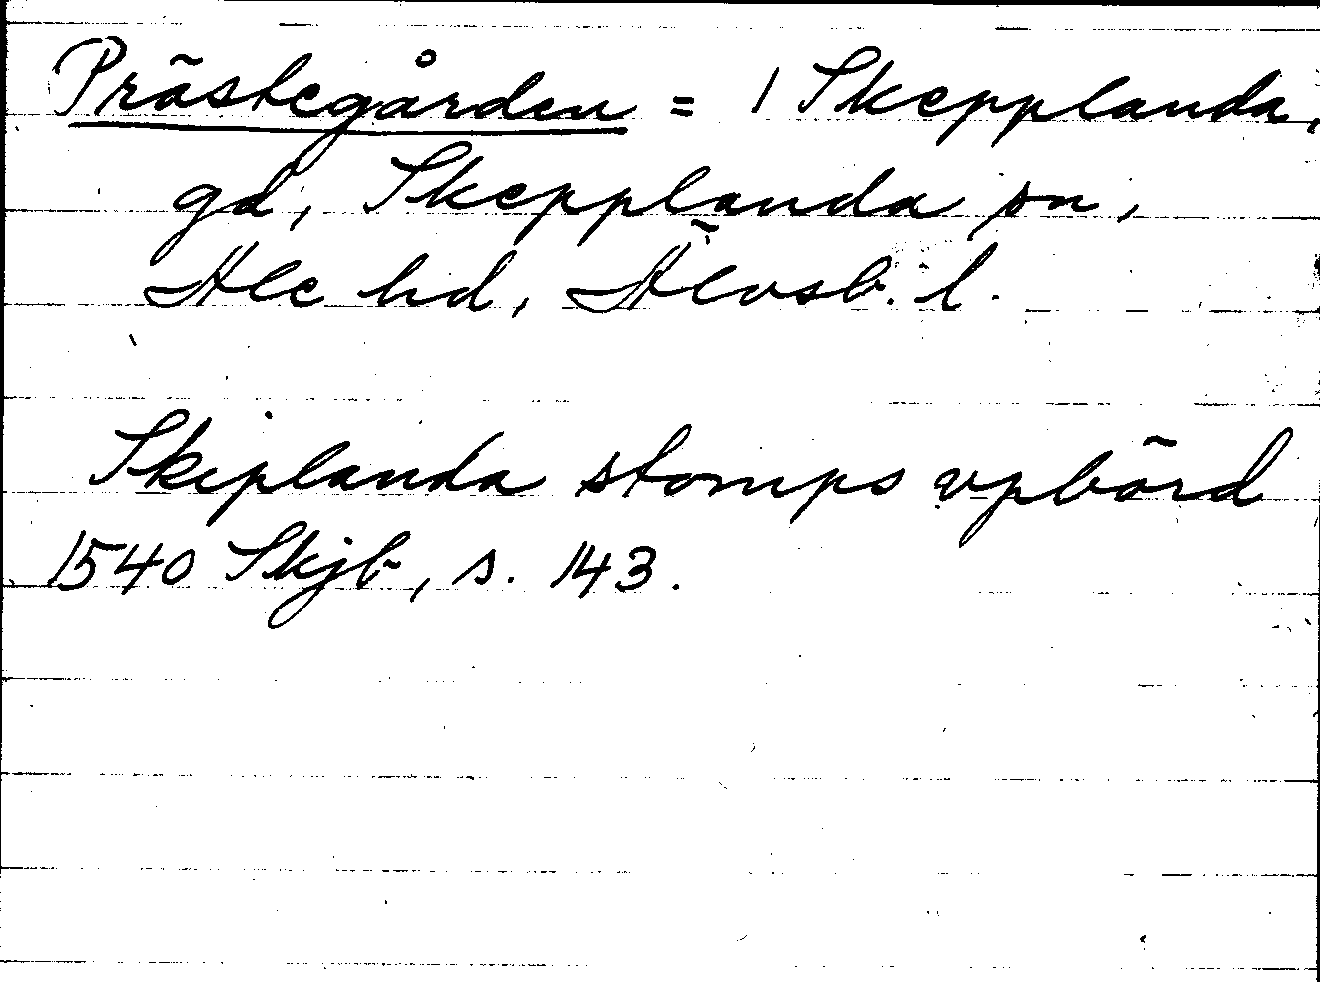 Prästegården = 1 Skepplanda,
gd, Skepplanda sn,
Ale hd, Älvsb. l.
Skeplanda stomps vpbörd
1540 Skjb, s. 143.